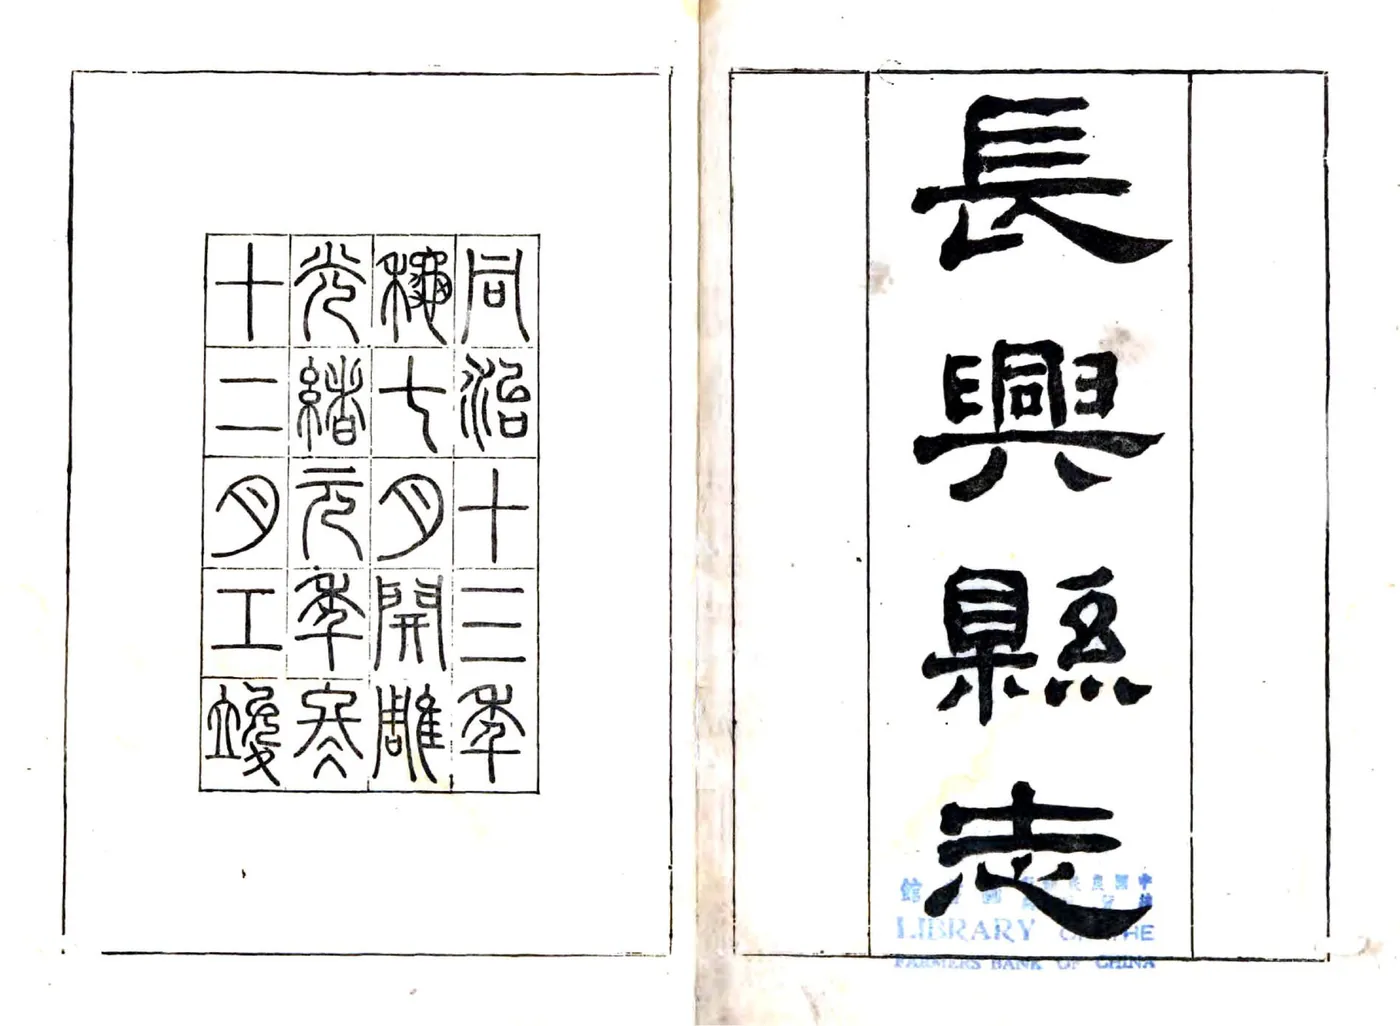 長興縣志
LIBRARY OF THE
FARMERS BANK OF CHINA
同治十三年
穐七月開雕
光緒元年冬
十二月工竣